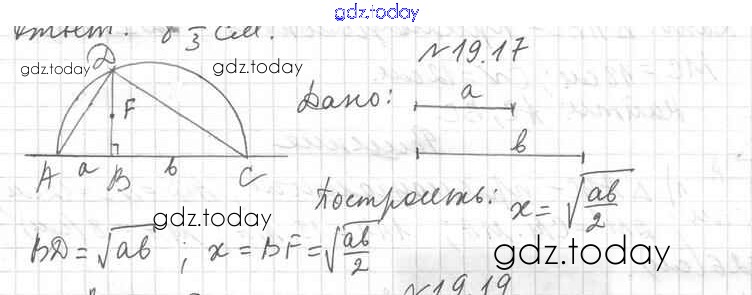 gdz.today
Ответ: 8 1/3 см.
D
gdz.today
gdz.today
F
A a B b C
№ 19.17
Дано: a
b
Построить: x = √(ab/2)
gdz.today
BD = √ab ; x = BF = √(ab/2)
gdz.today
№ 19.19